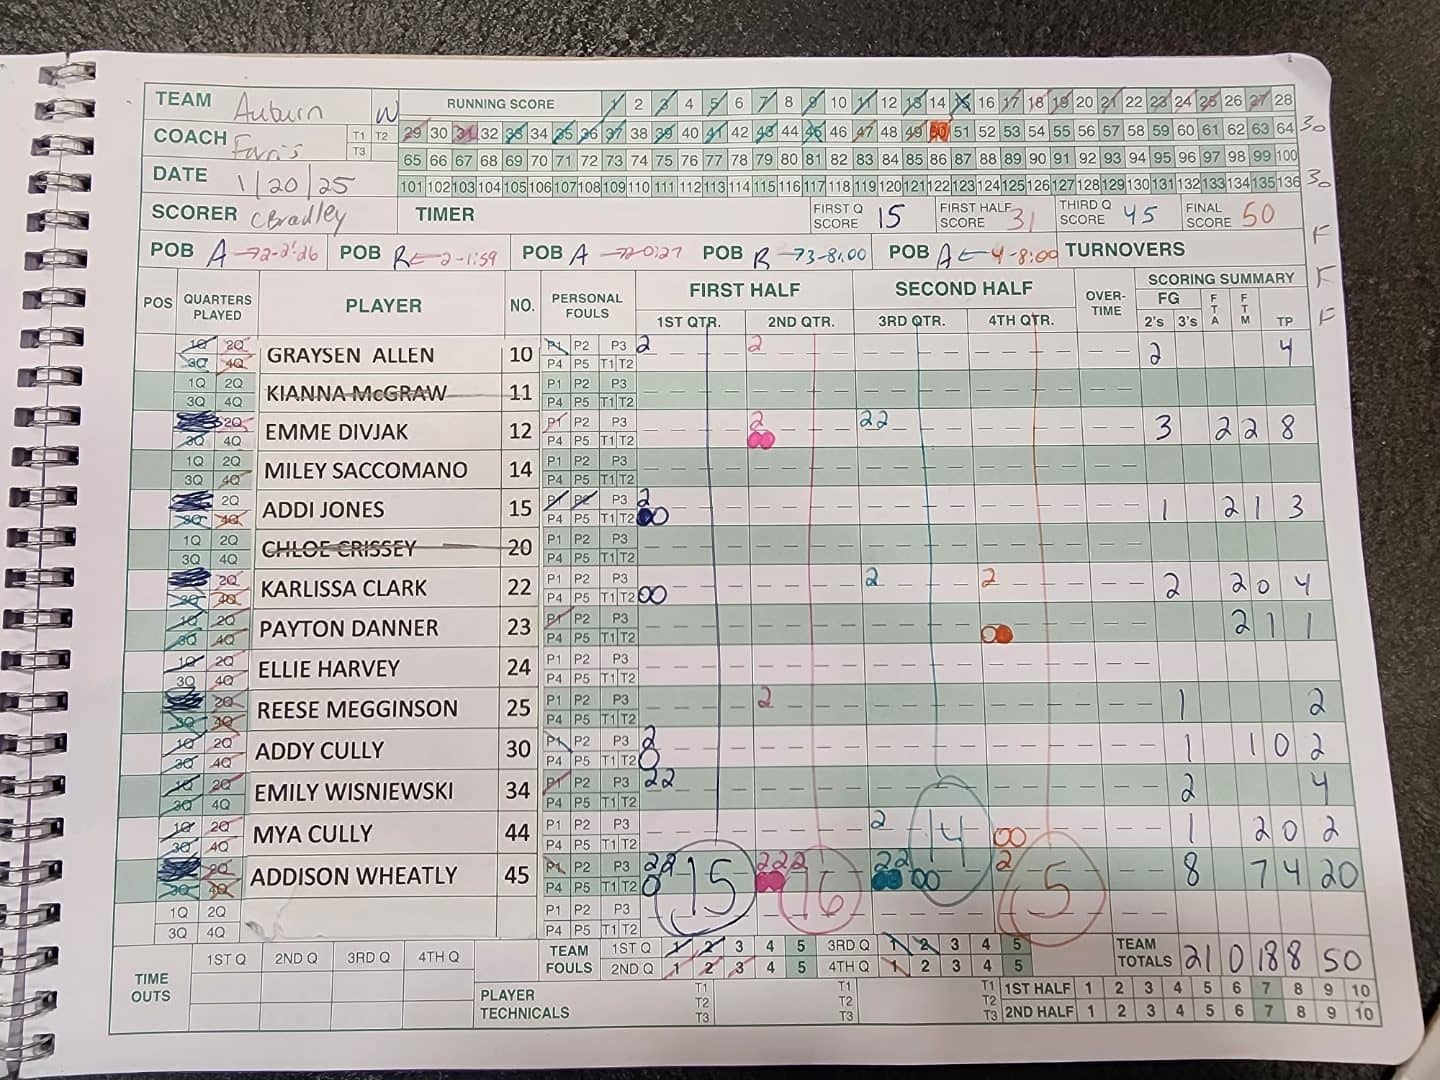 TEAM Auburn W RUNNING SCORE 1 2 3 4 5 6 7 8 9 10 11 12 13 14 15 16 17 18 19 20 21 22 23 24 25 26 27 28
COACH Farris T1 T2 T3 29 30 31 32 33 34 35 36 37 38 39 40 41 42 43 44 45 46 47 48 49 50 51 52 53 54 55 56 57 58 59 60 61 62 63 64 30
65 66 67 68 69 70 71 72 73 74 75 76 77 78 79 80 81 82 83 84 85 86 87 88 89 90 91 92 93 94 95 96 97 98 99 100
DATE 1/20/25 101 102 103 104 105 106 107 108 109 110 111 112 113 114 115 116 117 118 119 120 121 122 123 124 125 126 127 128 129 130 131 132 133 134 135 136 30
SCORER CBradley TIMER FIRST Q SCORE 15 FIRST HALF SCORE 31 THIRD Q SCORE 45 FINAL SCORE 50
F
POB A →2-2:26 POB R ←2-1:59 POB A →2-0:27 POB R →3-8:00 POB A ←4-8:00 TURNOVERS
F
POS QUARTERS PLAYED PLAYER NO. PERSONAL FOULS FIRST HALF SECOND HALF OVER-TIME SCORING SUMMARY
1ST QTR. 2ND QTR. 3RD QTR. 4TH QTR. FG 2's 3's FTA FTM TP
F
1Q 2Q 3Q 4Q GRAYSEN ALLEN 10 P1 P2 P3 P4 P5 T1 T2 2 2 2 4
1Q 2Q 3Q 4Q KIANNA McGRAW 11 P1 P2 P3 P4 P5 T1 T2
2Q 3Q 4Q EMME DIVJAK 12 P1 P2 P3 P4 P5 T1 T2 2 22 3 2 2 8
1Q 2Q 3Q 4Q MILEY SACCOMANO 14 P1 P2 P3 P4 P5 T1 T2
2Q 3Q 4Q ADDI JONES 15 P1 P2 P3 P4 P5 T1 T2 2 1 2 1 3
1Q 2Q 3Q 4Q CHLOE CRISSEY 20 P1 P2 P3 P4 P5 T1 T2
2Q 3Q 4Q KARLISSA CLARK 22 P1 P2 P3 P4 P5 T1 T2 2 2 2 2 0 4
1Q 2Q 3Q 4Q PAYTON DANNER 23 P1 P2 P3 P4 P5 T1 T2 2 1 1
1Q 2Q 3Q 4Q ELLIE HARVEY 24 P1 P2 P3 P4 P5 T1 T2
2Q 3Q 4Q REESE MEGGINSON 25 P1 P2 P3 P4 P5 T1 T2 2 1 2
1Q 2Q 3Q 4Q ADDY CULLY 30 P1 P2 P3 P4 P5 T1 T2 2 1 1 0 2
1Q 2Q 3Q 4Q EMILY WISNIEWSKI 34 P1 P2 P3 P4 P5 T1 T2 22 2 4
1Q 2Q 3Q 4Q MYA CULLY 44 P1 P2 P3 P4 P5 T1 T2 2 14 1 2 0 2
2Q 3Q 4Q ADDISON WHEATLY 45 P1 P2 P3 P4 P5 T1 T2 22 15 222 16 22 2 5 8 7 4 20
1Q 2Q 3Q 4Q P1 P2 P3 P4 P5 T1 T2
TIME OUTS 1ST Q 2ND Q 3RD Q 4TH Q TEAM FOULS 1ST Q 1 2 3 4 5 3RD Q 1 2 3 4 5 TEAM TOTALS 21 0 18 8 50
2ND Q 1 2 3 4 5 4TH Q 1 2 3 4 5
PLAYER TECHNICALS T1 T2 T3 T1 T2 T3 T1 T2 T3 1ST HALF 1 2 3 4 5 6 7 8 9 10
2ND HALF 1 2 3 4 5 6 7 8 9 10